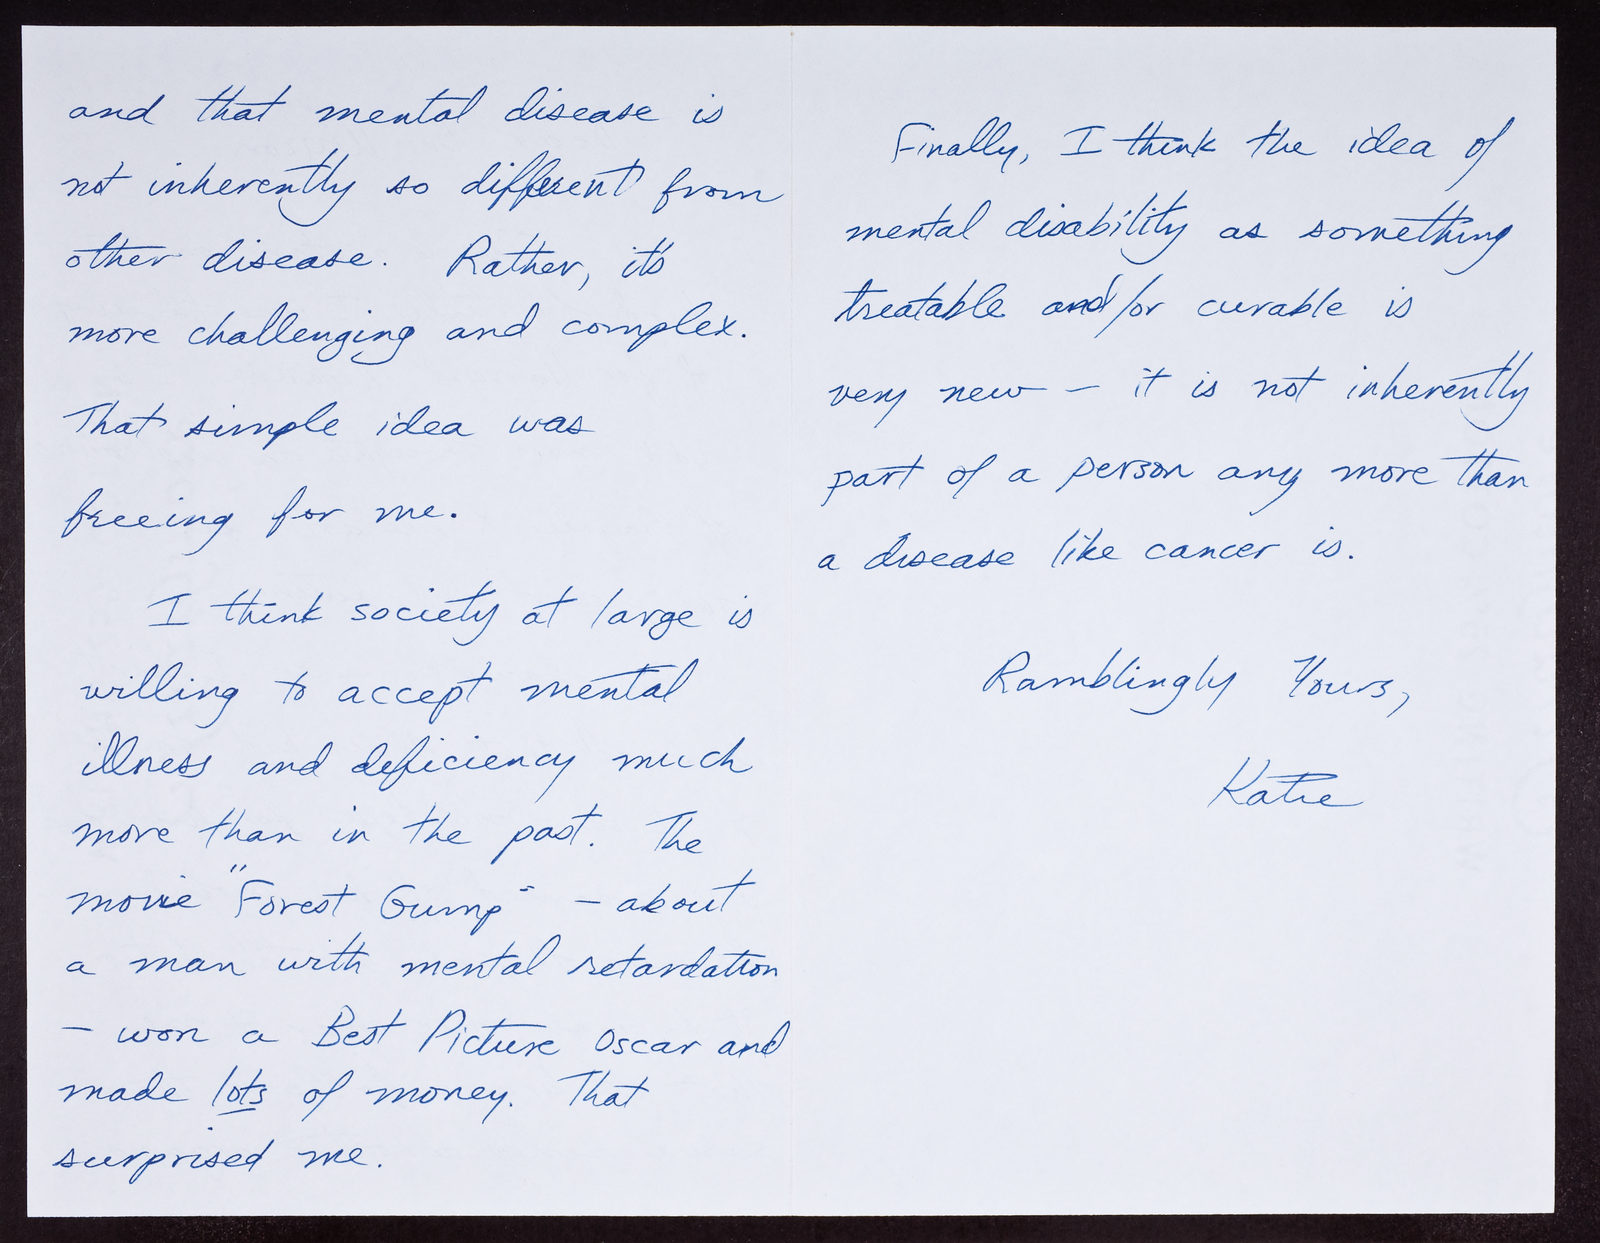 and that mental disease is
not inherently so different from
other disease. Rather, it's
more challenging and complex.
That simple idea was
freeing for me.
I think society at large is
willing to accept mental
illness and deficiency much
more than in the past. The
movie "Forest Gump" - about
a man with mental retardation
- won a Best Picture Oscar and
made lots of money. That
surprised me.
Finally, I think the idea of
mental disability as something
treatable and/or curable is
very new - it is not inherently
part of a person any more than
a disease like cancer is.
Ramblingly Yours,
Katie